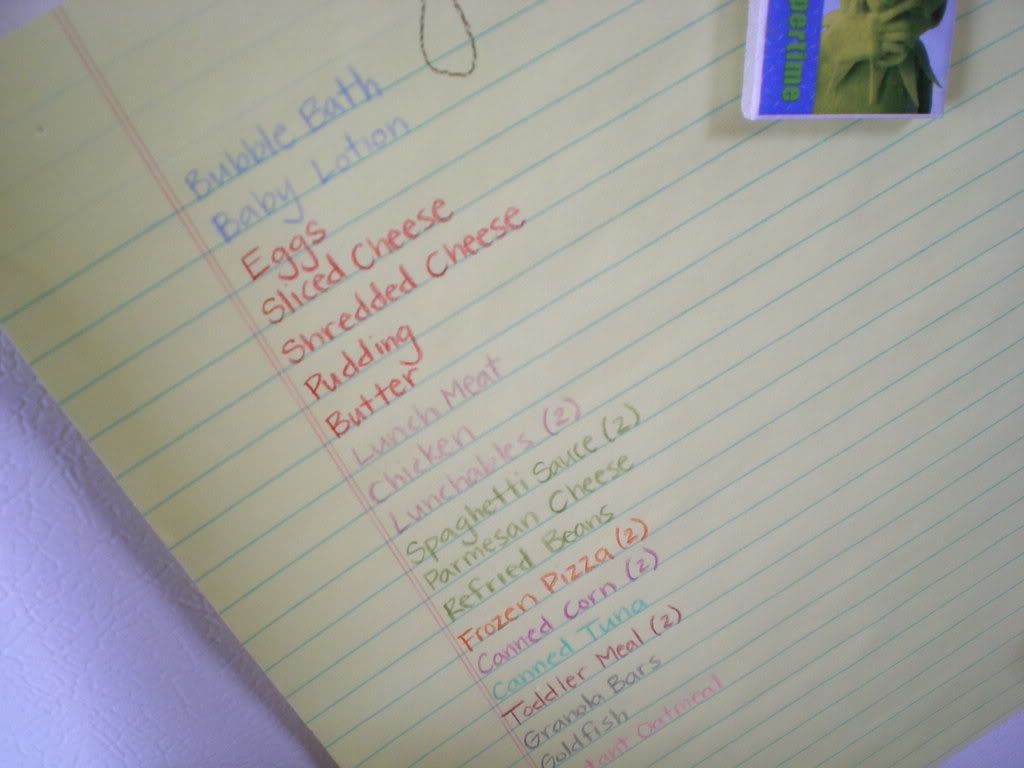 pertime
Bubble Bath
Baby Lotion
Eggs
Sliced Cheese
Shredded Cheese
Pudding
Butter
Lunch Meat
Chicken
Lunchables (2)
Spaghetti Sauce (2)
Parmesan Cheese
Refried Beans
Frozen Pizza (2)
Canned Corn (2)
Canned Tuna
Toddler Meal (2)
Granola Bars
Goldfish
tant Oatmeal